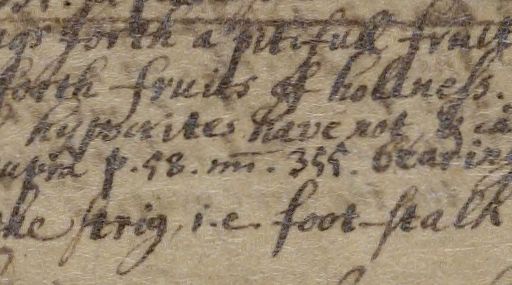 forth a pitifull fruit
forth fruits of holines.
hypocrites have not, &
supra p. 58. m. 355. bearing
the strig, i.e. foot-stalk